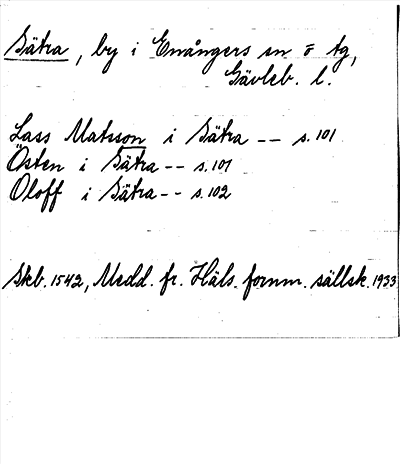 Sätra, by i Enångers sn o tg,
Gävleb. l.
Lass Matsson i Sätra -- s. 101
Östen i Sätra -- s. 101
Oloff i Sätra -- s. 102
Skb. 1542, Medd. fr. Häls. fornm. sällsk. 1933